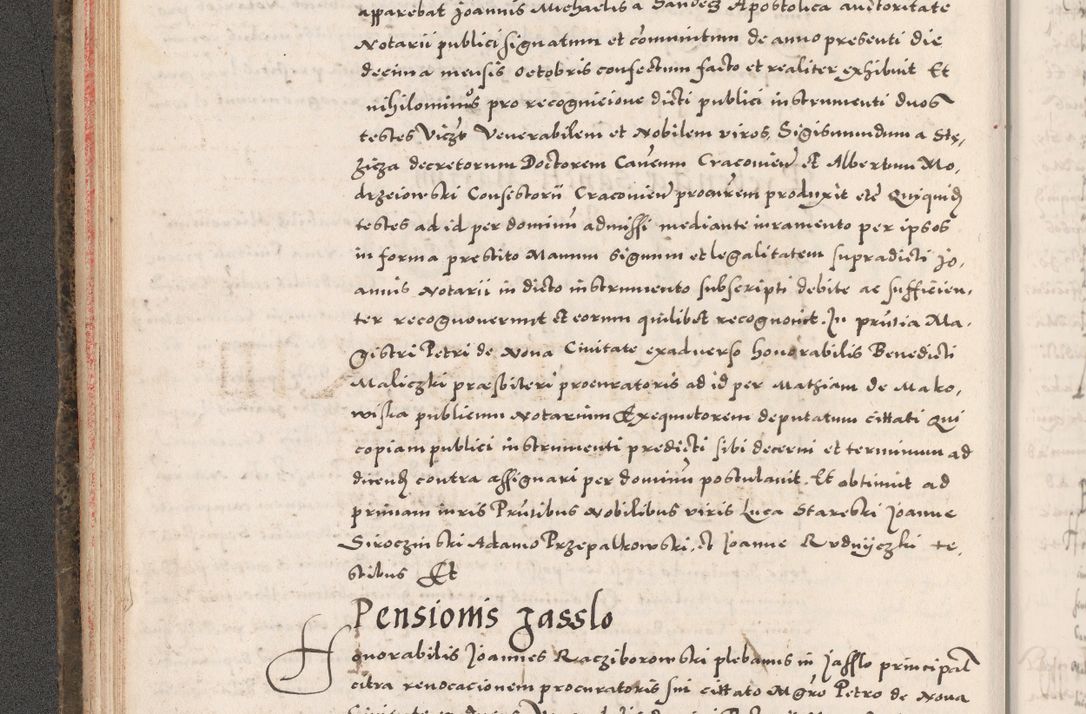 apparebat Joannis Michaelis a Sandecz Apostolica auctoritate
Notarii publici signatum et communitum de anno presenti die
decima mensis octobris confectum facto et realiter exhibuit Et
nihilominus pro recognicione dicti publici instrumenti duos
testes Viczt Venerabilem et Nobilem viros Sigismundum a Stę,
zicza decretorum Doctorem Canonicum Cracovien et Albertum Mo,
drzeiowski Consistorii Cracovien procurem produxit etc Quiquid
testes ad id per dominum admissi mediante iuramento per ipsos
in forma prestito Manum signum et legalitatem supradicti Jo,
annis Notarii in dicto instrumento subscripti debite ac sufficien,
ter recognoverunt et eorum quilibet recognovit. In pntia Ma,
gistri Petri de Nova Civitate exadverso honorabilis Benedicti
Maliczki præsbiteri procuratoris ad id per Mathiam de Mako,
wiska publicum Notarium Exequutorem deputatum cittati Qui
copiam publici instrumenti predicti sibi decerni et terminum ad
dicend contra assignari per dominum postulavit. Et obtinuit ad
primam iuris Pntibus Nobilibus viris Luca Stareski Joanne
Siroczinski Adamo Przepalkowski, et Joanne Rudniczki te,
stibus Et
Pensionis Jasslo
Honorabilis Joannes Racziborowski plebanus in Jasslo principal
citra revocacionem procuratoris sui cittato Mgro Petro de Nova